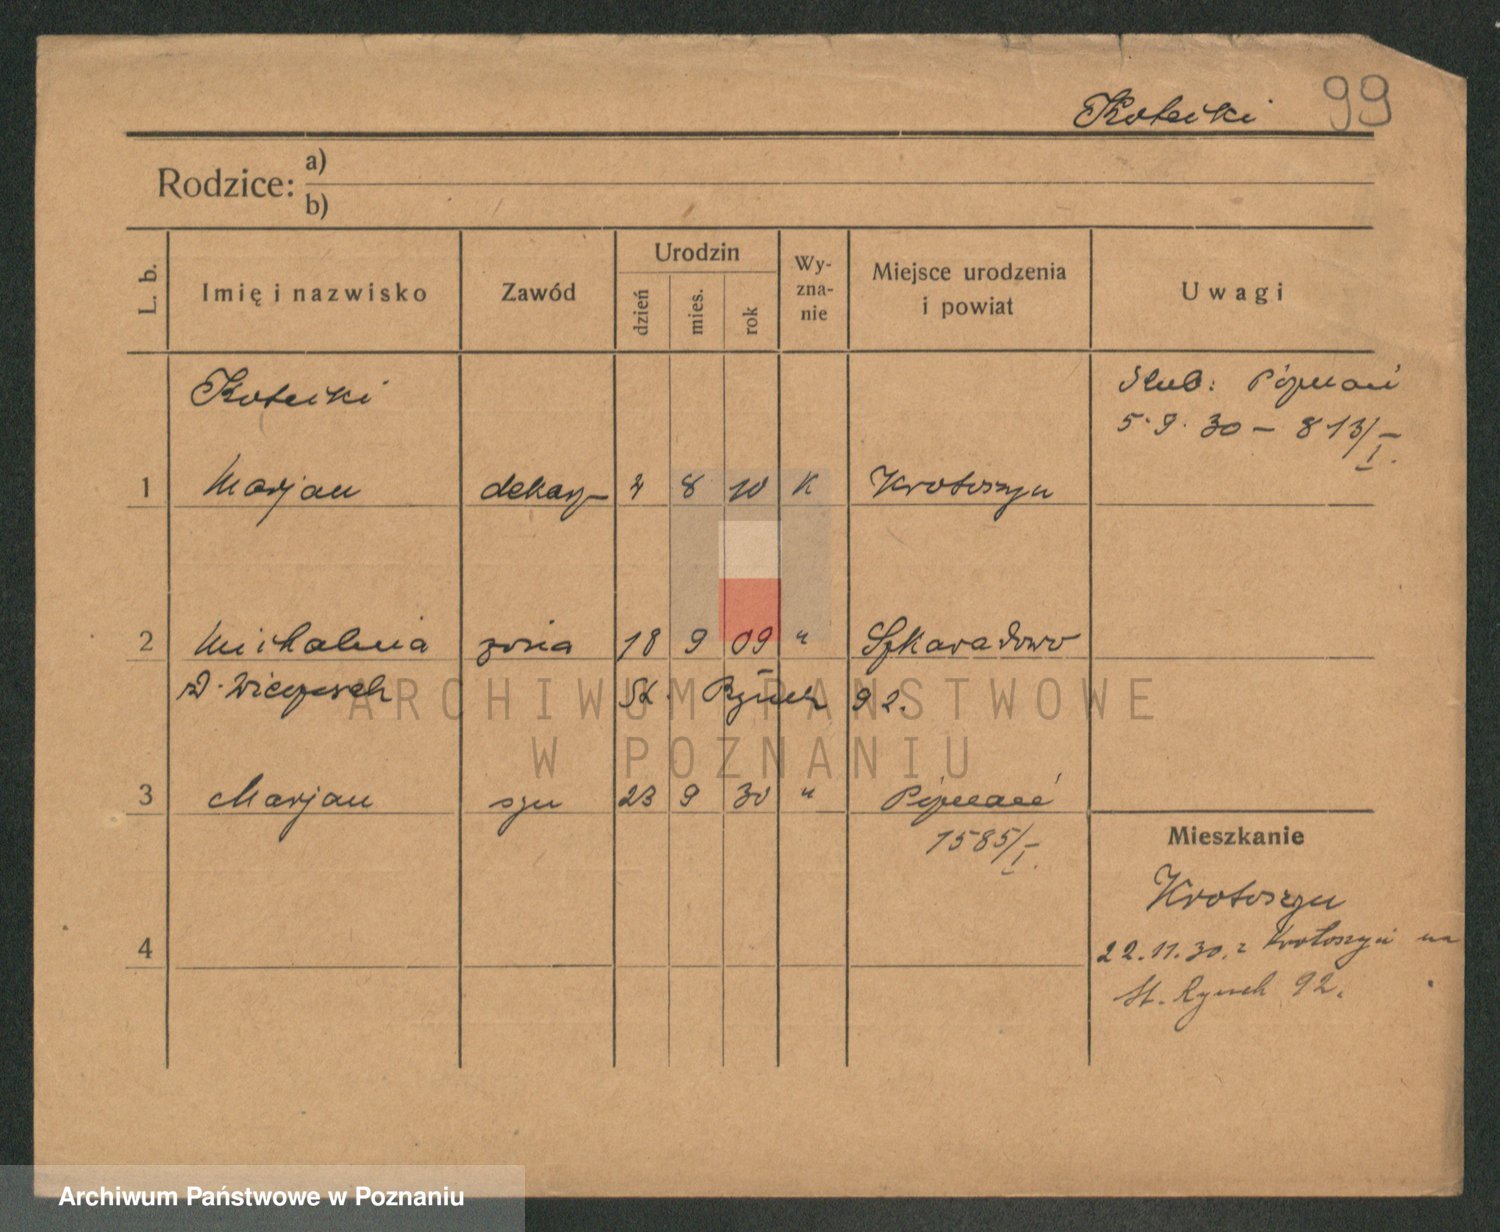 Kotecki 99
Rodzice: a)
b)
L. b. Imię i nazwisko Zawód Urodzin dzień mies. rok Wy-zna-nie Miejsce urodzenia i powiat Uwagi
Kotecki Ślub: Poznań
5.9.30 – 813/I.
1 Marjan dekarz 4 8 10 K Krotoszyn
2 żona 18 9 09 " Szkaradowo
St. Rynek 92.
3 Marjan syn 23 9 30 " Poznań
1585/I.
Mieszkanie
Krotoszyn
4
22.11.30. z Krotoszyn na
St. Rynek 92.
ARCHIWUM PAŃSTWOWE
W POZNANIU
Archiwum Państwowe w Poznaniu